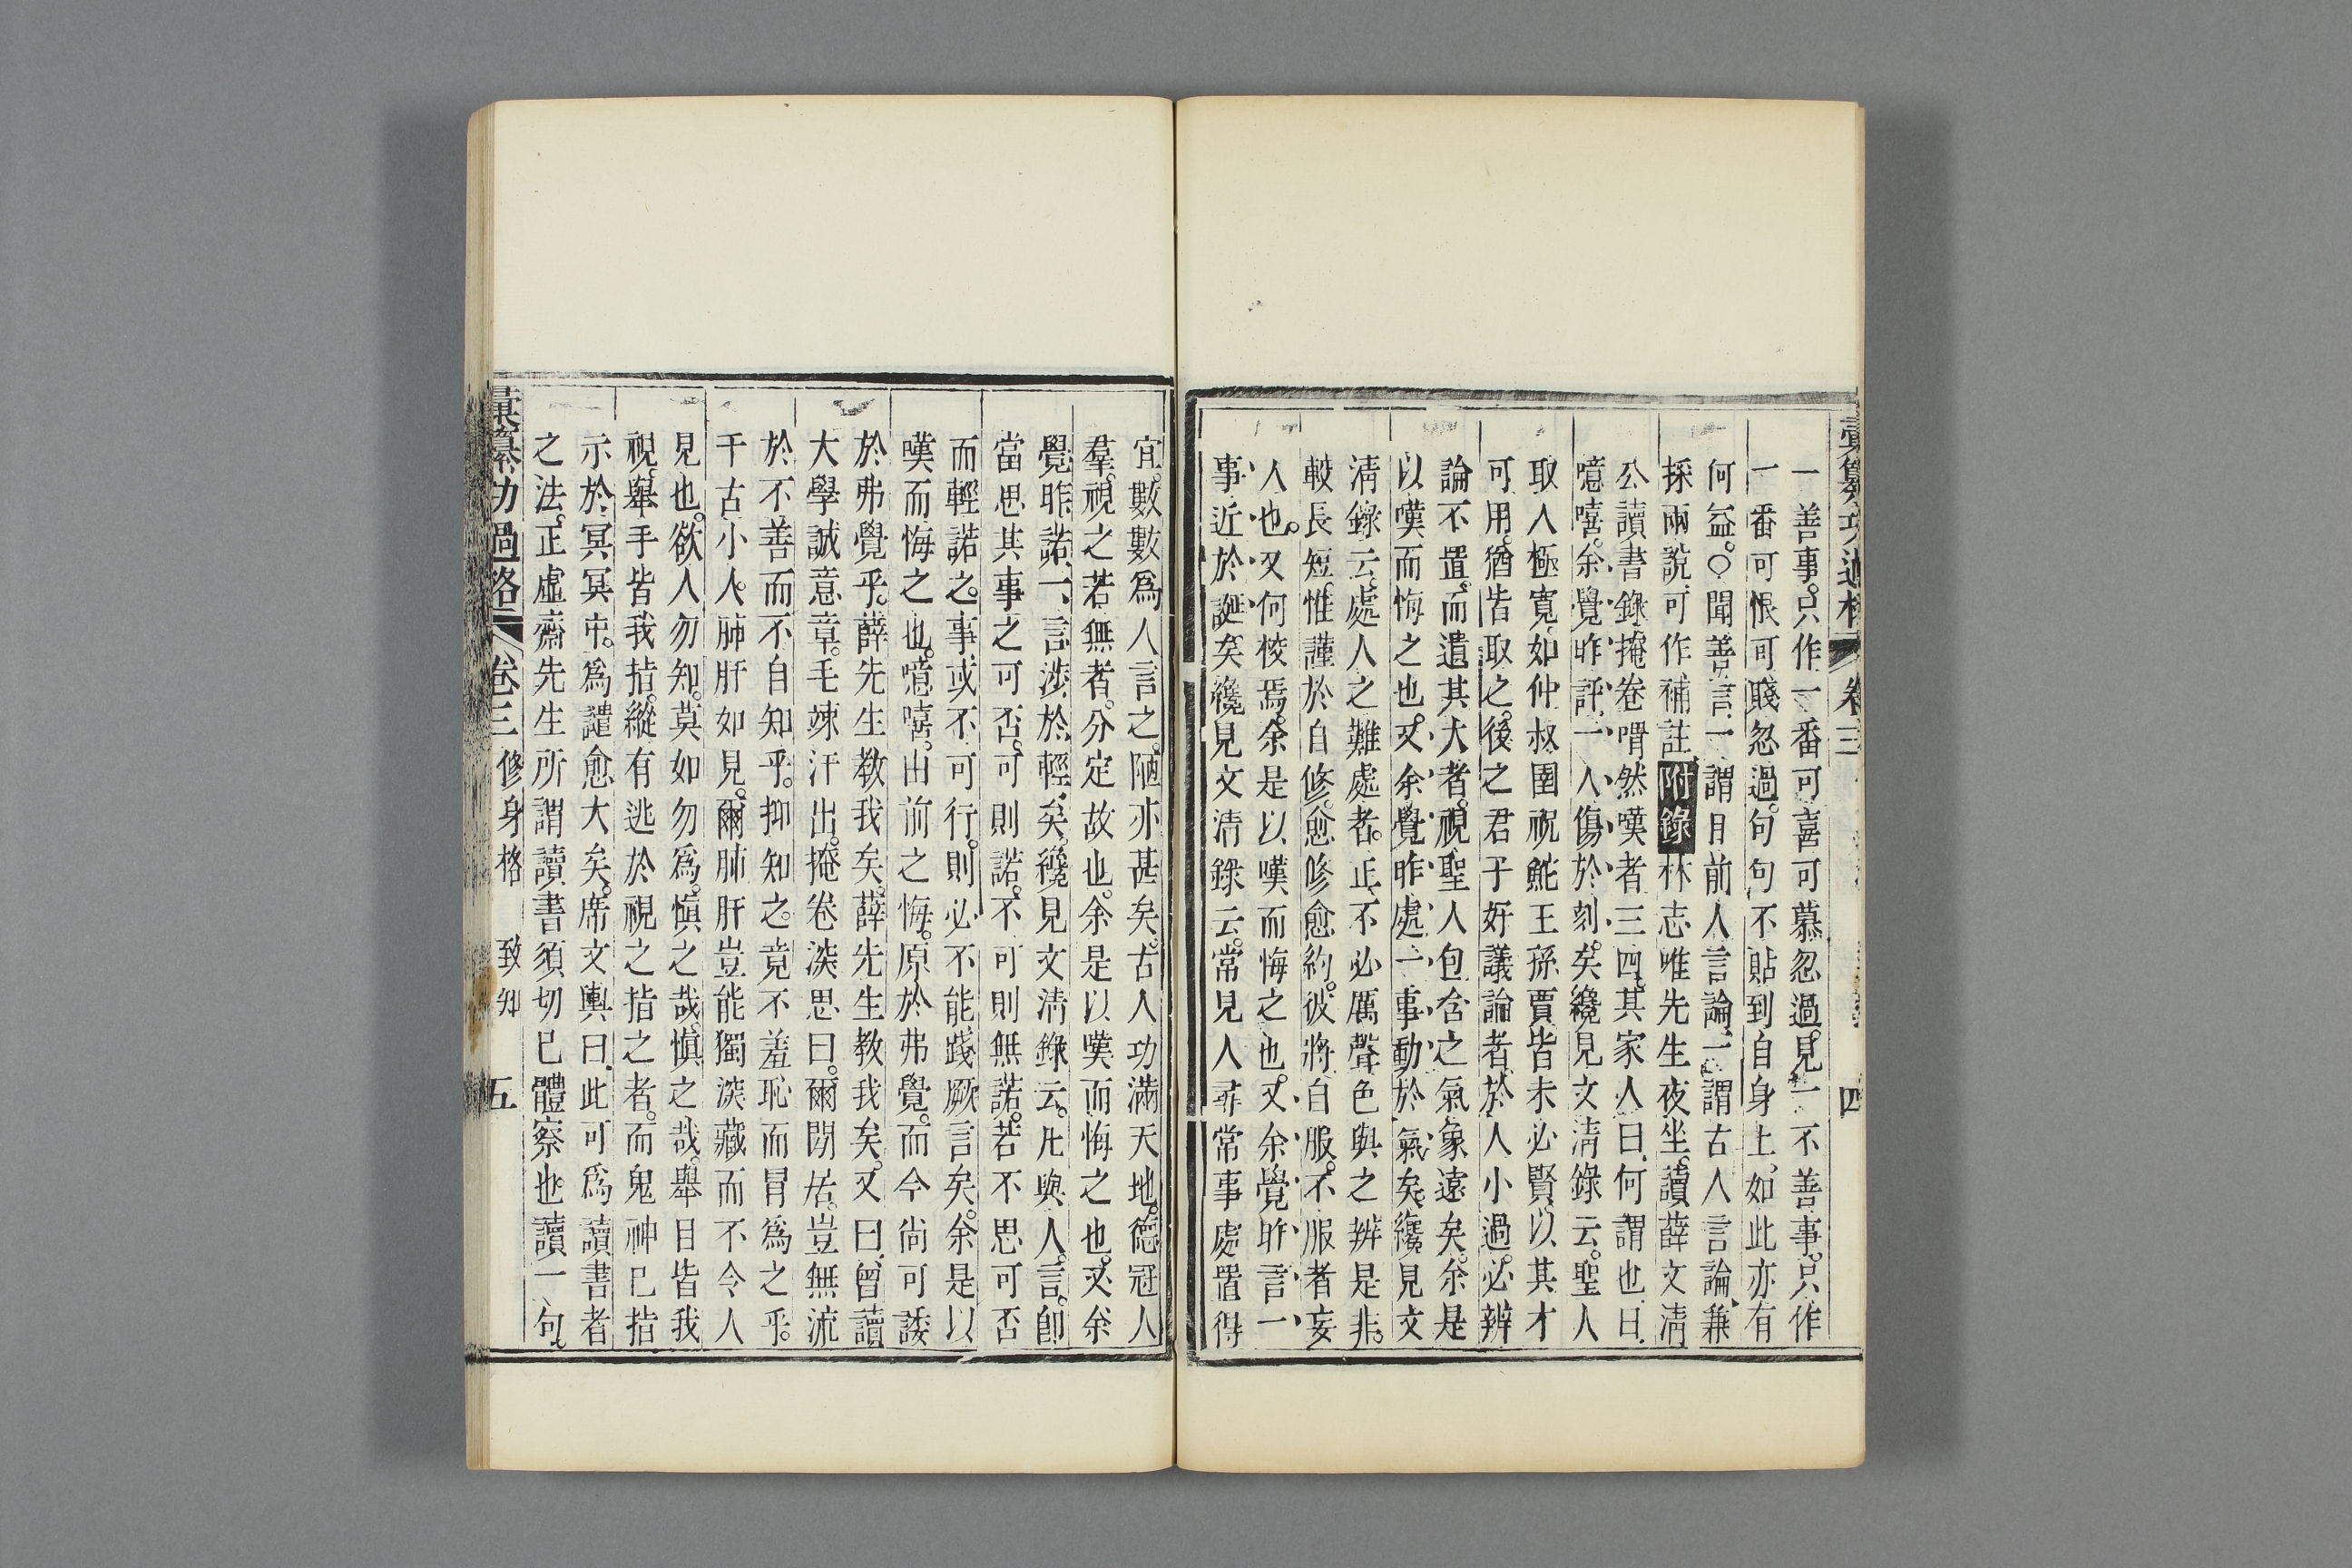 彙纂功過格 卷三 四
一善事。只作一番可喜可慕忽過。見一不善事。只作
一番可恨可賤忽過。句句不貼到自身上。如此亦有
何益。○聞善言一謂目前人言論。一謂古人言論。兼
採兩說。可作補註。附錄林志唯先生夜坐。讀薛文清
公讀書錄。掩卷喟然嘆者三四。其家人曰。何謂也。曰。
噫嘻。余覺昨評一人傷於刻矣。纔見文清錄云。聖人
取人極寬。如仲叔圉祝鮀王孫賈皆未必賢。以其才
可用。猶皆取之。後之君子好議論者。於人小過。必辨
論不置。而遺其大者。視聖人包含之氣象遠矣。余是
以嘆而悔之也。又余覺昨處一事動於氣矣。纔見文
清錄云。處人之難處者。正不必厲聲色與之辨是非。
較長短。惟謹於自修。愈修愈約。彼將自服。不服者妄
人也。又何校焉。余是以嘆而悔之也。又余覺昨言一
事近於誕矣。纔見文清錄云。常見人尋常事處置得
宜。數數爲人言之。陋亦甚矣。古人功滿天地。德冠人
羣。視之若無者。分定故也。余是以嘆而悔之也。又余
覺昨諾一言涉於輕矣。纔見文清錄云。凡與人言。卽
當思其事之可否。可則諾。不可則無諾。若不思可否
而輕諾之。事或不可行。則必不能踐厥言矣。余是以
嘆而悔之也。噫嘻。由前之悔。原於弗覺。而今尚可諉
於弗覺乎。薛先生教我矣。薛先生教我矣。又曰。曾讀
大學誠意章。毛竦汗出。掩卷深思曰。爾閒居。豈無流
於不善而不自知乎。抑知之。竟不羞恥而冒爲之乎。
千古小人。肺肝如見。爾肺肝豈能獨深藏而不令人
見也。欲人勿知。莫如勿爲。愼之哉。愼之哉。舉目皆我
視。舉手皆我指。縱有逃於視之指之者。而鬼神已指
示於冥冥中。爲譴愈大矣。席文輿曰。此可爲讀書者
之法。正虛齋先生所謂讀書須切己體察也。讀一句。
彙纂功過格 卷三 修身格 致知 五